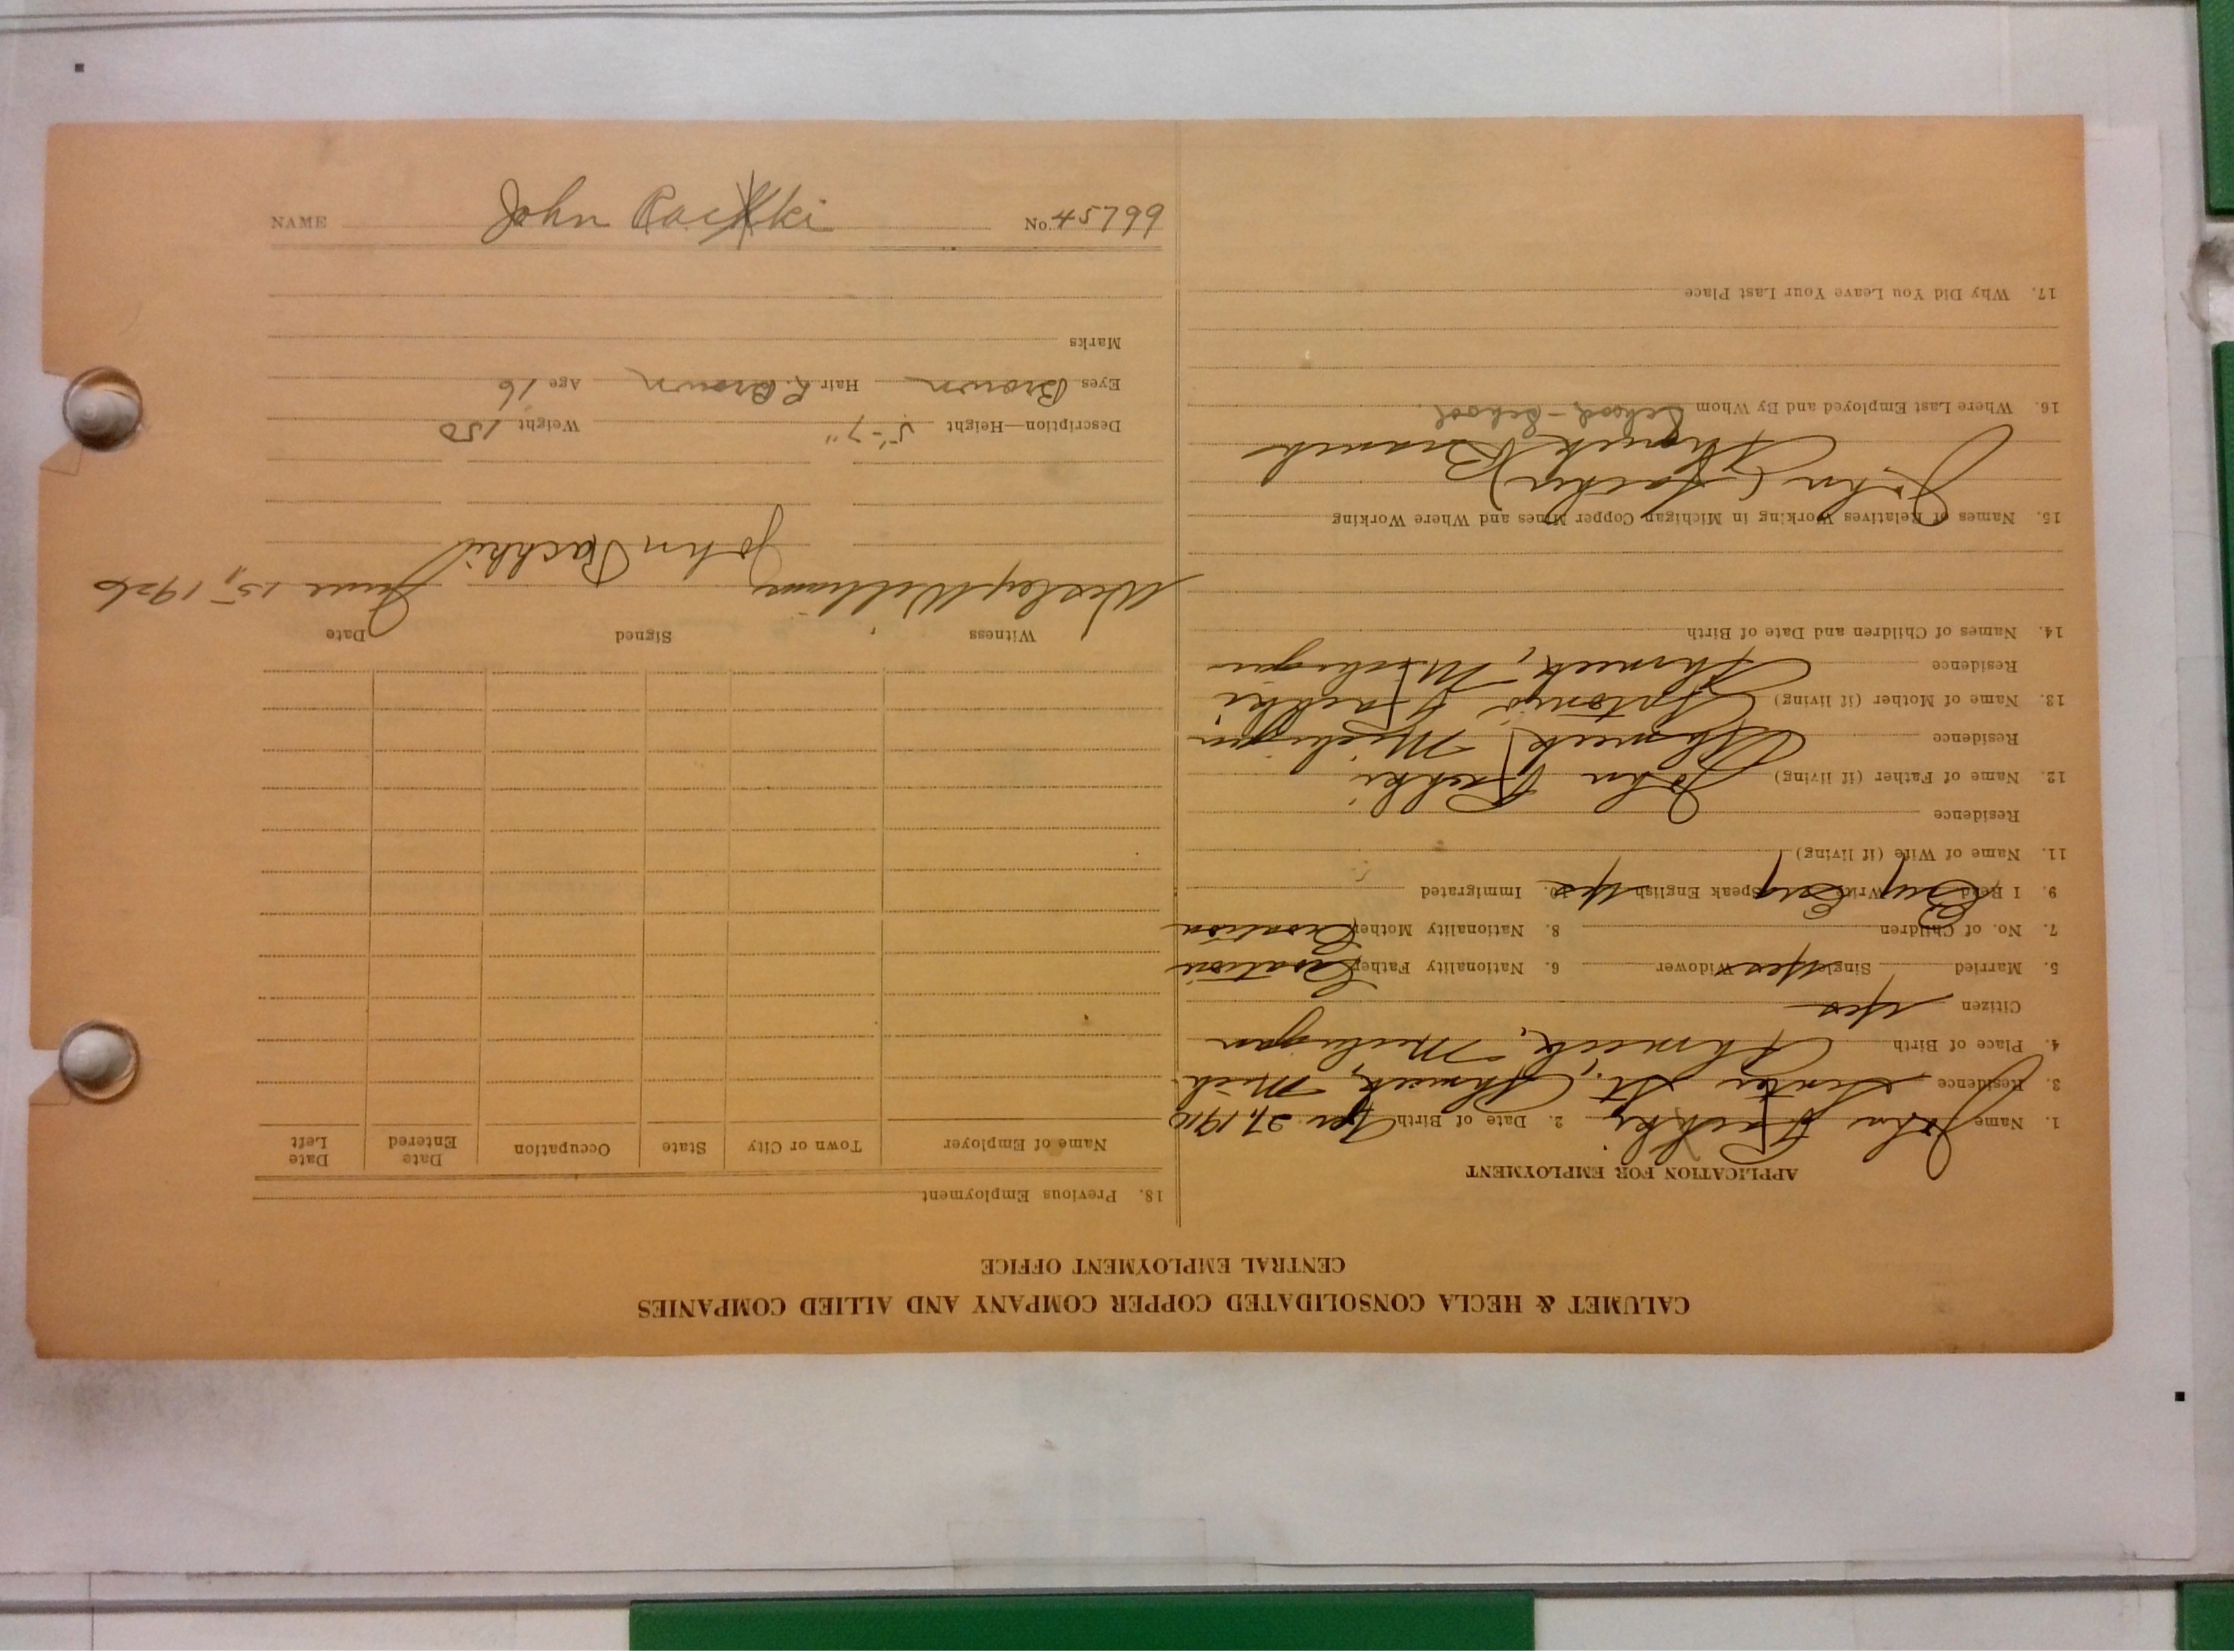 CALUMET & HECLA CONSOLIDATED COPPER COMPANY AND ALLIED COMPANIES
CENTRAL EMPLOYMENT OFFICE
APPLICATION FOR EMPLOYMENT
1. Name John Rachki 2. Date of Birth 27, 1910
3. Residence St., Ahmeek, Mich
4. Place of Birth Ahmeek, Michigan
Citizen yes
5. Married Single yes Widower 6. Nationality Father Croation
7. No. of Children 8. Nationality Mother Croation
9. I Read Eng Write Eng Speak English yes 10. Immigrated
11. Name of Wife (if living)
Residence
12. Name of Father (if living) John Rachki
Residence Ahmeek, Michigan
13. Name of Mother (if living) Rachki
Residence Ahmeek, Michigan
14. Names of Children and Date of Birth
15. Names of Relatives Working in Michigan Copper Mines and Where Working
John (Father) Ahmeek Branch
16. Where Last Employed and By Whom School - School
17. Why Did You Leave Your Last Place
18. Previous Employment
Name of Employer Town or City State Occupation Date Entered Date Left
Witness Signed Date
Wesley Williams John Rachki June 15, 1926
Description—Height 5'-7" Weight 150
Eyes Brown Hair L. Brown Age 16
Marks
NAME John Racki No. 45799